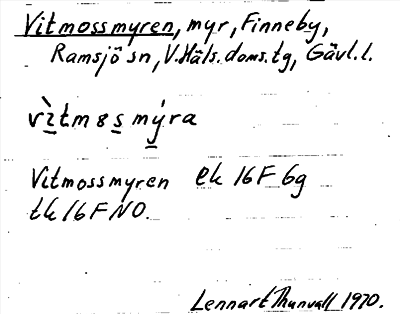 Vitmossmyren, myr, Finneby,
Ramsjö sn, V. Häls. doms. tg, Gävl. l.
vìtm8s mýra
Vitmossmyren ek 16F 6g
tk 16 F NO.
Lennart Thunvall 1970.